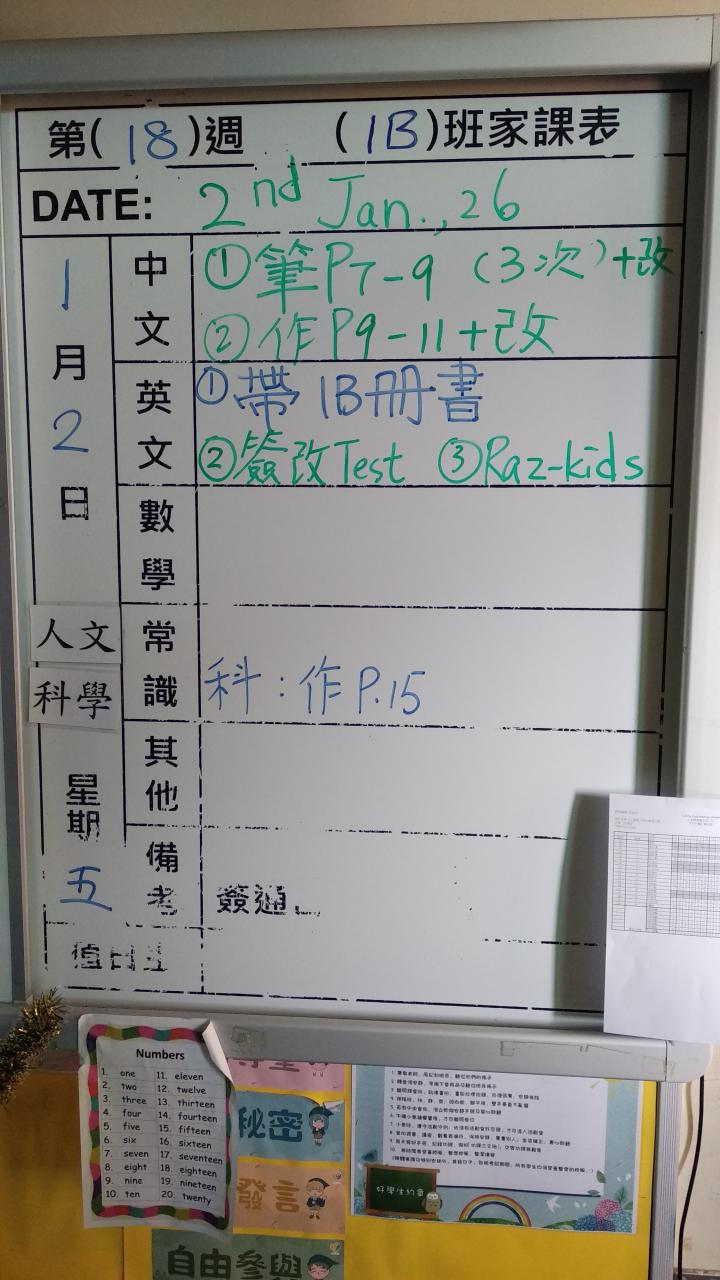 第(18)週 (1B)班家課表
DATE: 2nd Jan., 26
1月2日
人文
科學
星期五
中文
①筆P7-9 (3次)+改
②作P9-11+改
英文
①帶1B冊書
②簽改Test ③Raz-kids
數學
常識
科:作P.15
其他
備考
簽通
值日生
Numbers
1. one 11. eleven
2. two 12. twelve
3. three 13. thirteen
4. four 14. fourteen
5. five 15. fifteen
6. six 16. sixteen
7. seven 17. seventeen
8. eight 18. eighteen
9. nine 19. nineteen
10. ten 20. twenty
秘密
發言
自由參與
好學生約會